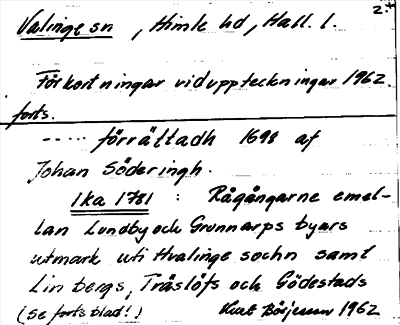 Valinge sn, Himle hd, Hall. l. 2.
Förkortningar vid uppteckningar 1962.
forts.
----- förrättadh 1698 af
Johan Söderingh.
Ika 1781 : Rågångarne emel-
lan Lundby och Grunnarps byars
utmark uti Hvalinge sochn samt
Lin bergs, Träslöfs och Gödestads
(se forts blad!) Kurt Börjesson 1962